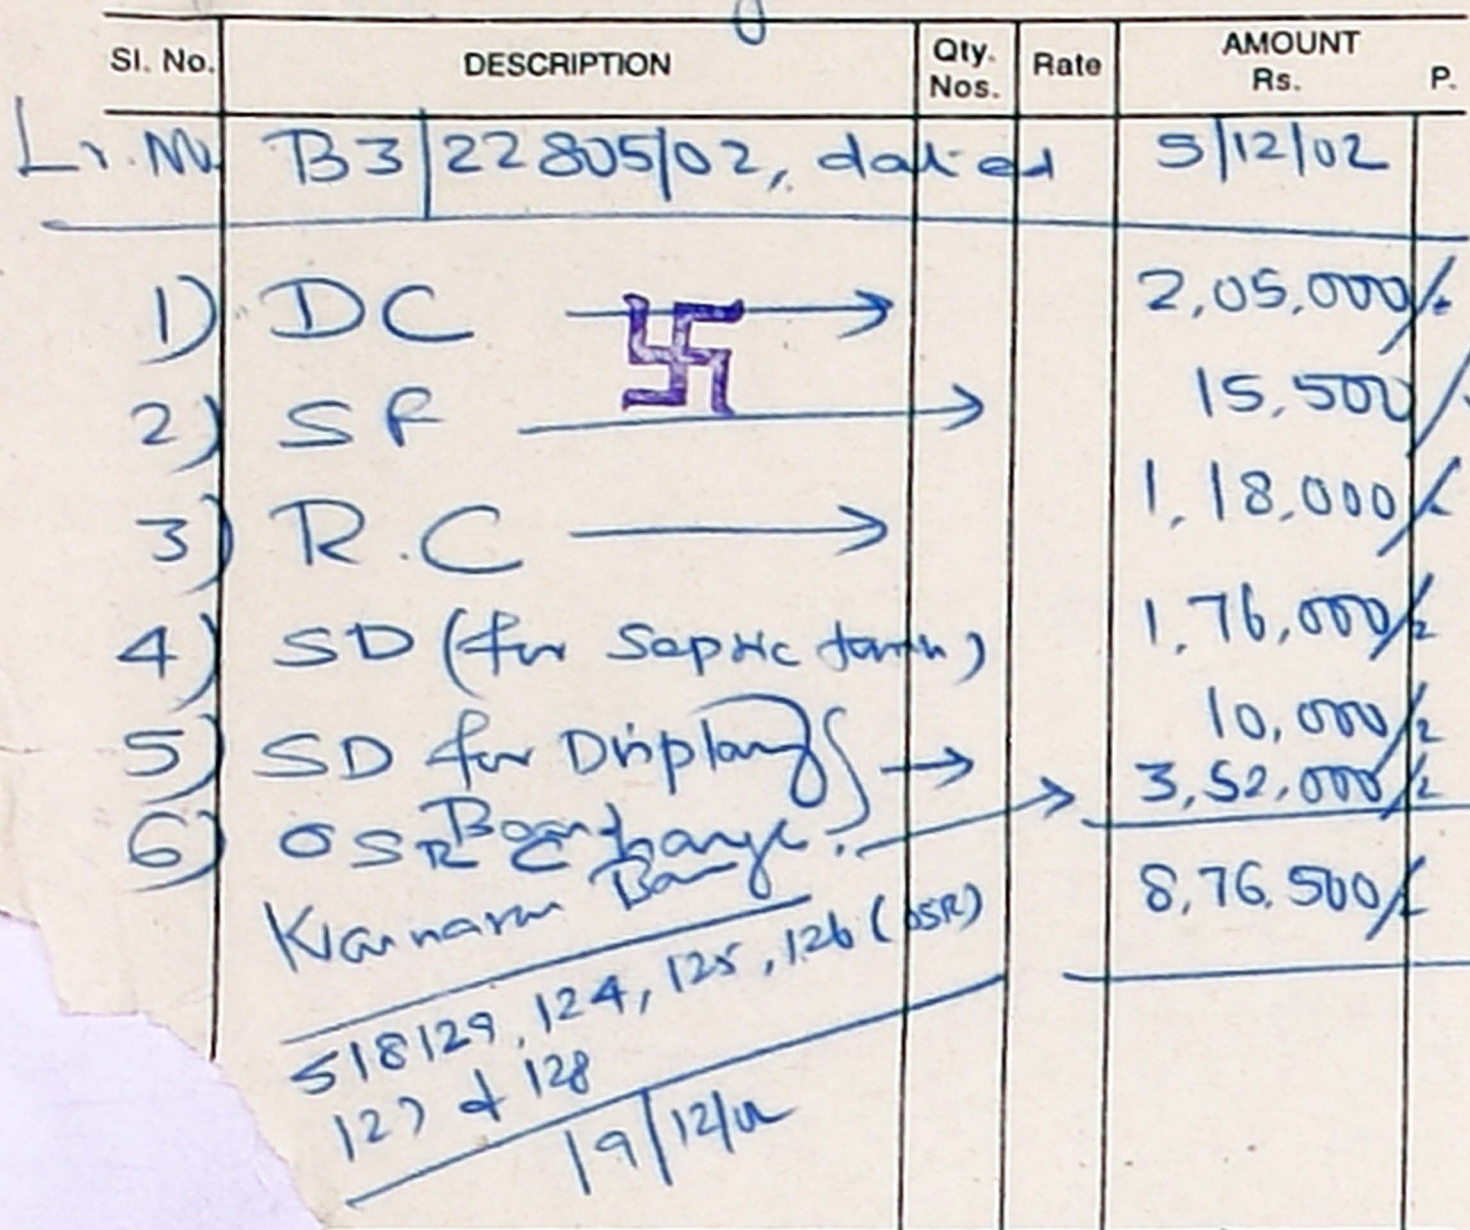 Sl. No. DESCRIPTION Qty. Nos. Rate AMOUNT Rs. P.
Lr. No. B3/22805/02, dated 5/12/02
1) DC → 2,05,000/-
2) SF → 15,500/-
3) R.C → 1,18,000/-
4) SD (for Septic tank) 1,76,000/-
5) SD for Display → 10,000/-
6) OSR Charge. → 3,52,000/-
8,76,500/-
518129, 124, 125, 126 (OSR)
127 & 128
19/12/02